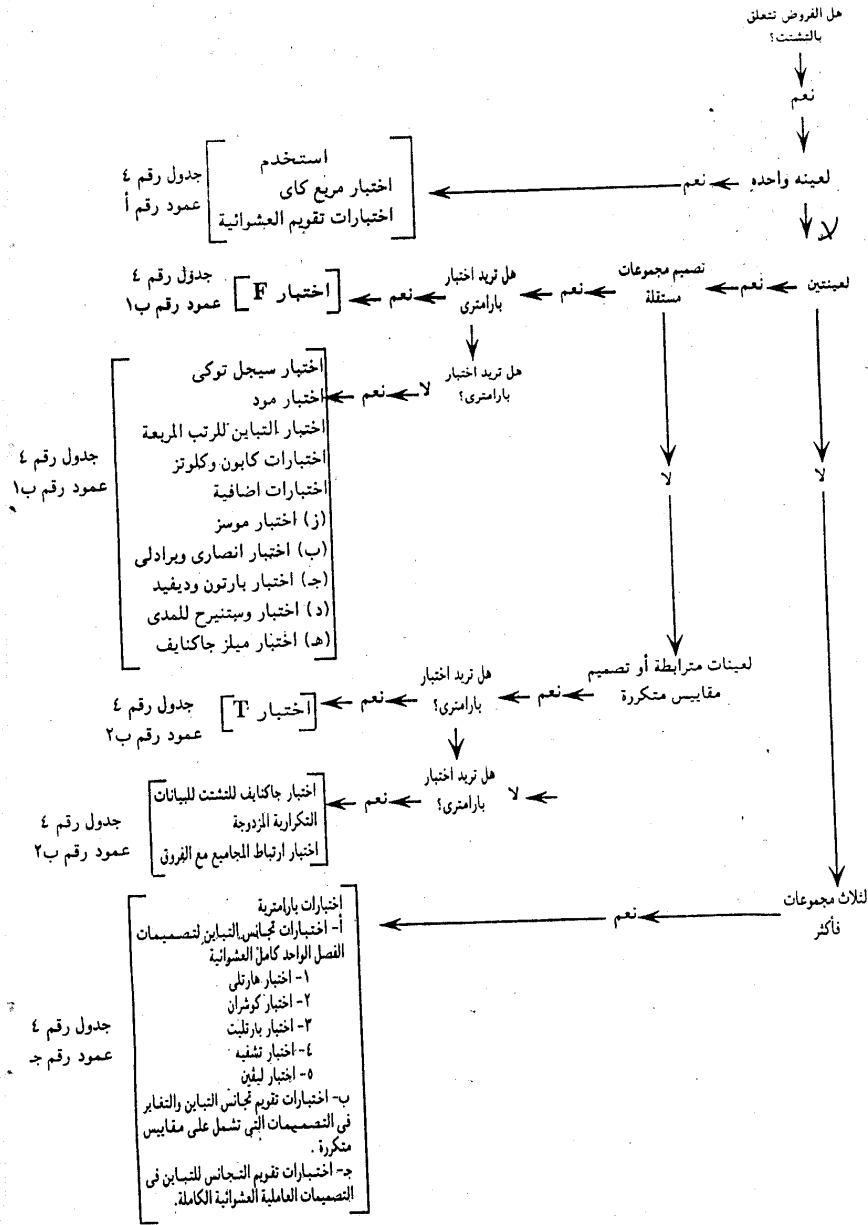 هل الفروض تتعلق
بالتشتت؟
نعم
لعينه واحده
نعم
استخدم
اختبار مربع كاى
اختبارات تقويم العشوائية
جدول رقم ٤
عمود رقم أ
لا
لعينتين
نعم
تصميم مجموعات
مستقلة
نعم
هل تريد اختبار
بارامترى
نعم
اختبار F
جدول رقم ٤
عمود رقم ب١
هل تريد اختبار
بارامترى؟
لا
نعم
اختبار سيجل توكى
اختبار مود
اختبار التباين للرتب المربعة
اختبارات كابون وكلوتز
اختبارات اضافية
(ز) اختبار موسز
(ب) اختبار انصارى وبرادلى
(جـ) اختبار بارتون وديفيد
(د) اختبار وستنيرح للمدى
(هـ) اختبار ميلز جاكنايف
جدول رقم ٤
عمود رقم ب١
لا
لا
لعينات مترابطة أو تصميم
مقاييس متكررة
نعم
هل تريد اختبار
بارامترى؟
نعم
اختبار T
جدول رقم ٤
عمود رقم ب٢
لا
هل تريد اختبار
بارامترى؟
نعم
اختبار جاكنايف للتشتت للبيانات
التكرارية المزدوجة
اختبار ارتباط المجاميع مع الفروق
جدول رقم ٤
عمود رقم ب٢
لثلاث مجموعات
فأكثر
نعم
إختبارات بارامترية
أ- اختبارات تجانس التباين لتصميمات
الفصل الواحد كامل العشوائية
١- اختبار هارتلى
٢- اختبار كوشران
٣- اختبار بارتليت
٤- اختبار تشفيه
٥- اختبار ليڤين
ب- اختبارات تقويم تجانس التباين والتغاير
فى التصميمات التي تشمل على مقاييس
متكررة .
جـ- اختبارات تقويم التجانس للتباين فى
التصميمات العاملية العشوائية الكاملة.
جدول رقم ٤
عمود رقم جـ